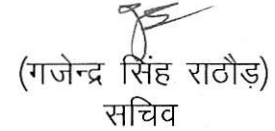 (गजेन्द्र सिंह राठौड़)
सचिव